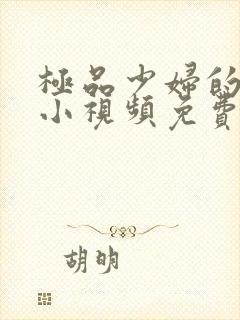 極品少婦的
小視頻免費
胡明